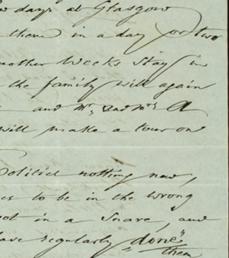 w days at Glasgow
them in a day or two
nother Weeks Stay in
the family will again
and Mr. and Mrs A
will make a tour on
Politics nothing new,
es to be in the wrong
ot in a Snare, and
ave regularly done
them